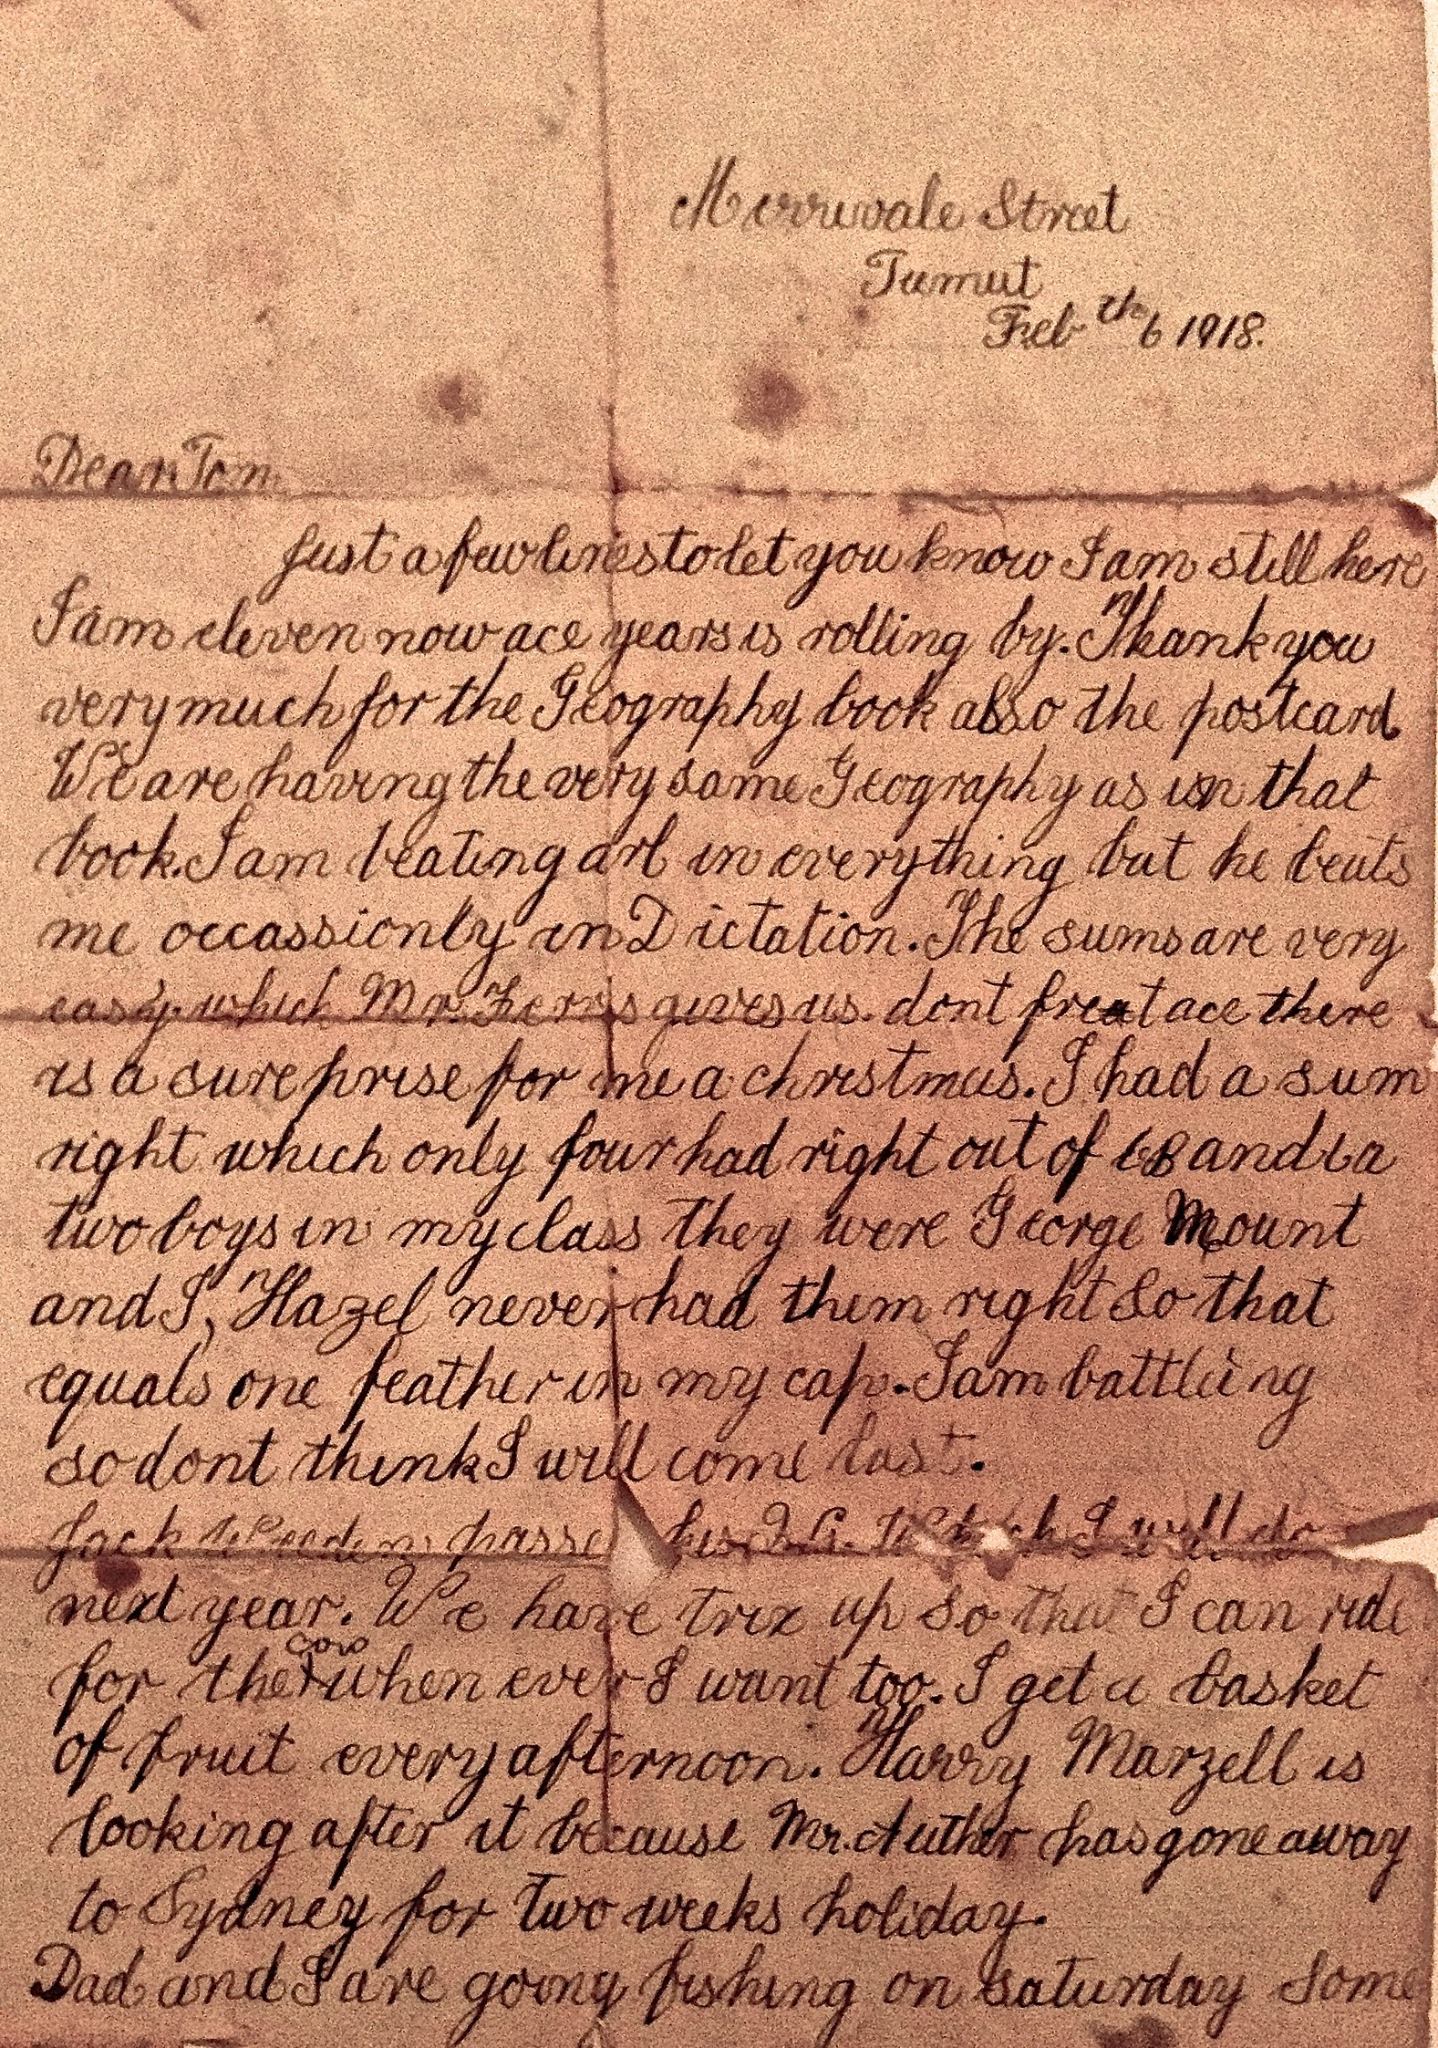 Merrivale Street
Tumut
Feb th 6 1918.
Dear Tom
Just a few lines to let you know I am still here
I am eleven now ace years is rolling by. Thank you
very much for the Geography book also the postcard
We are having the very same Geography as in that
book. I am beating art in everything but he beats
me occassionly in Dictation. The sums are very
easy which Mr. Ferris gives us. dont freat ace there
is a sure prise for me a christmas. I had a sum
right which only four had right out of and
two boys in my class they were George Mount
and I, Hazel never had them right so that
equals one feather in my cap. I am battleing
so dont think I will come last.
Jack Weeden passe his I will do
next year. We have trix up so that I can ride
for the cow when ever I want too. I get a basket
of fruit every afternoon. Harry Marzell is
looking after it because Mr. Auther has gone away
to Sydney for two weeks holiday.
Dad and I are going fishing on saturday some